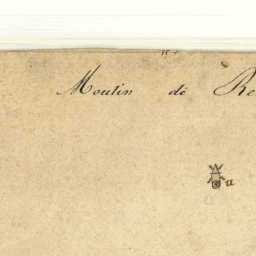 Moulin de Re
a